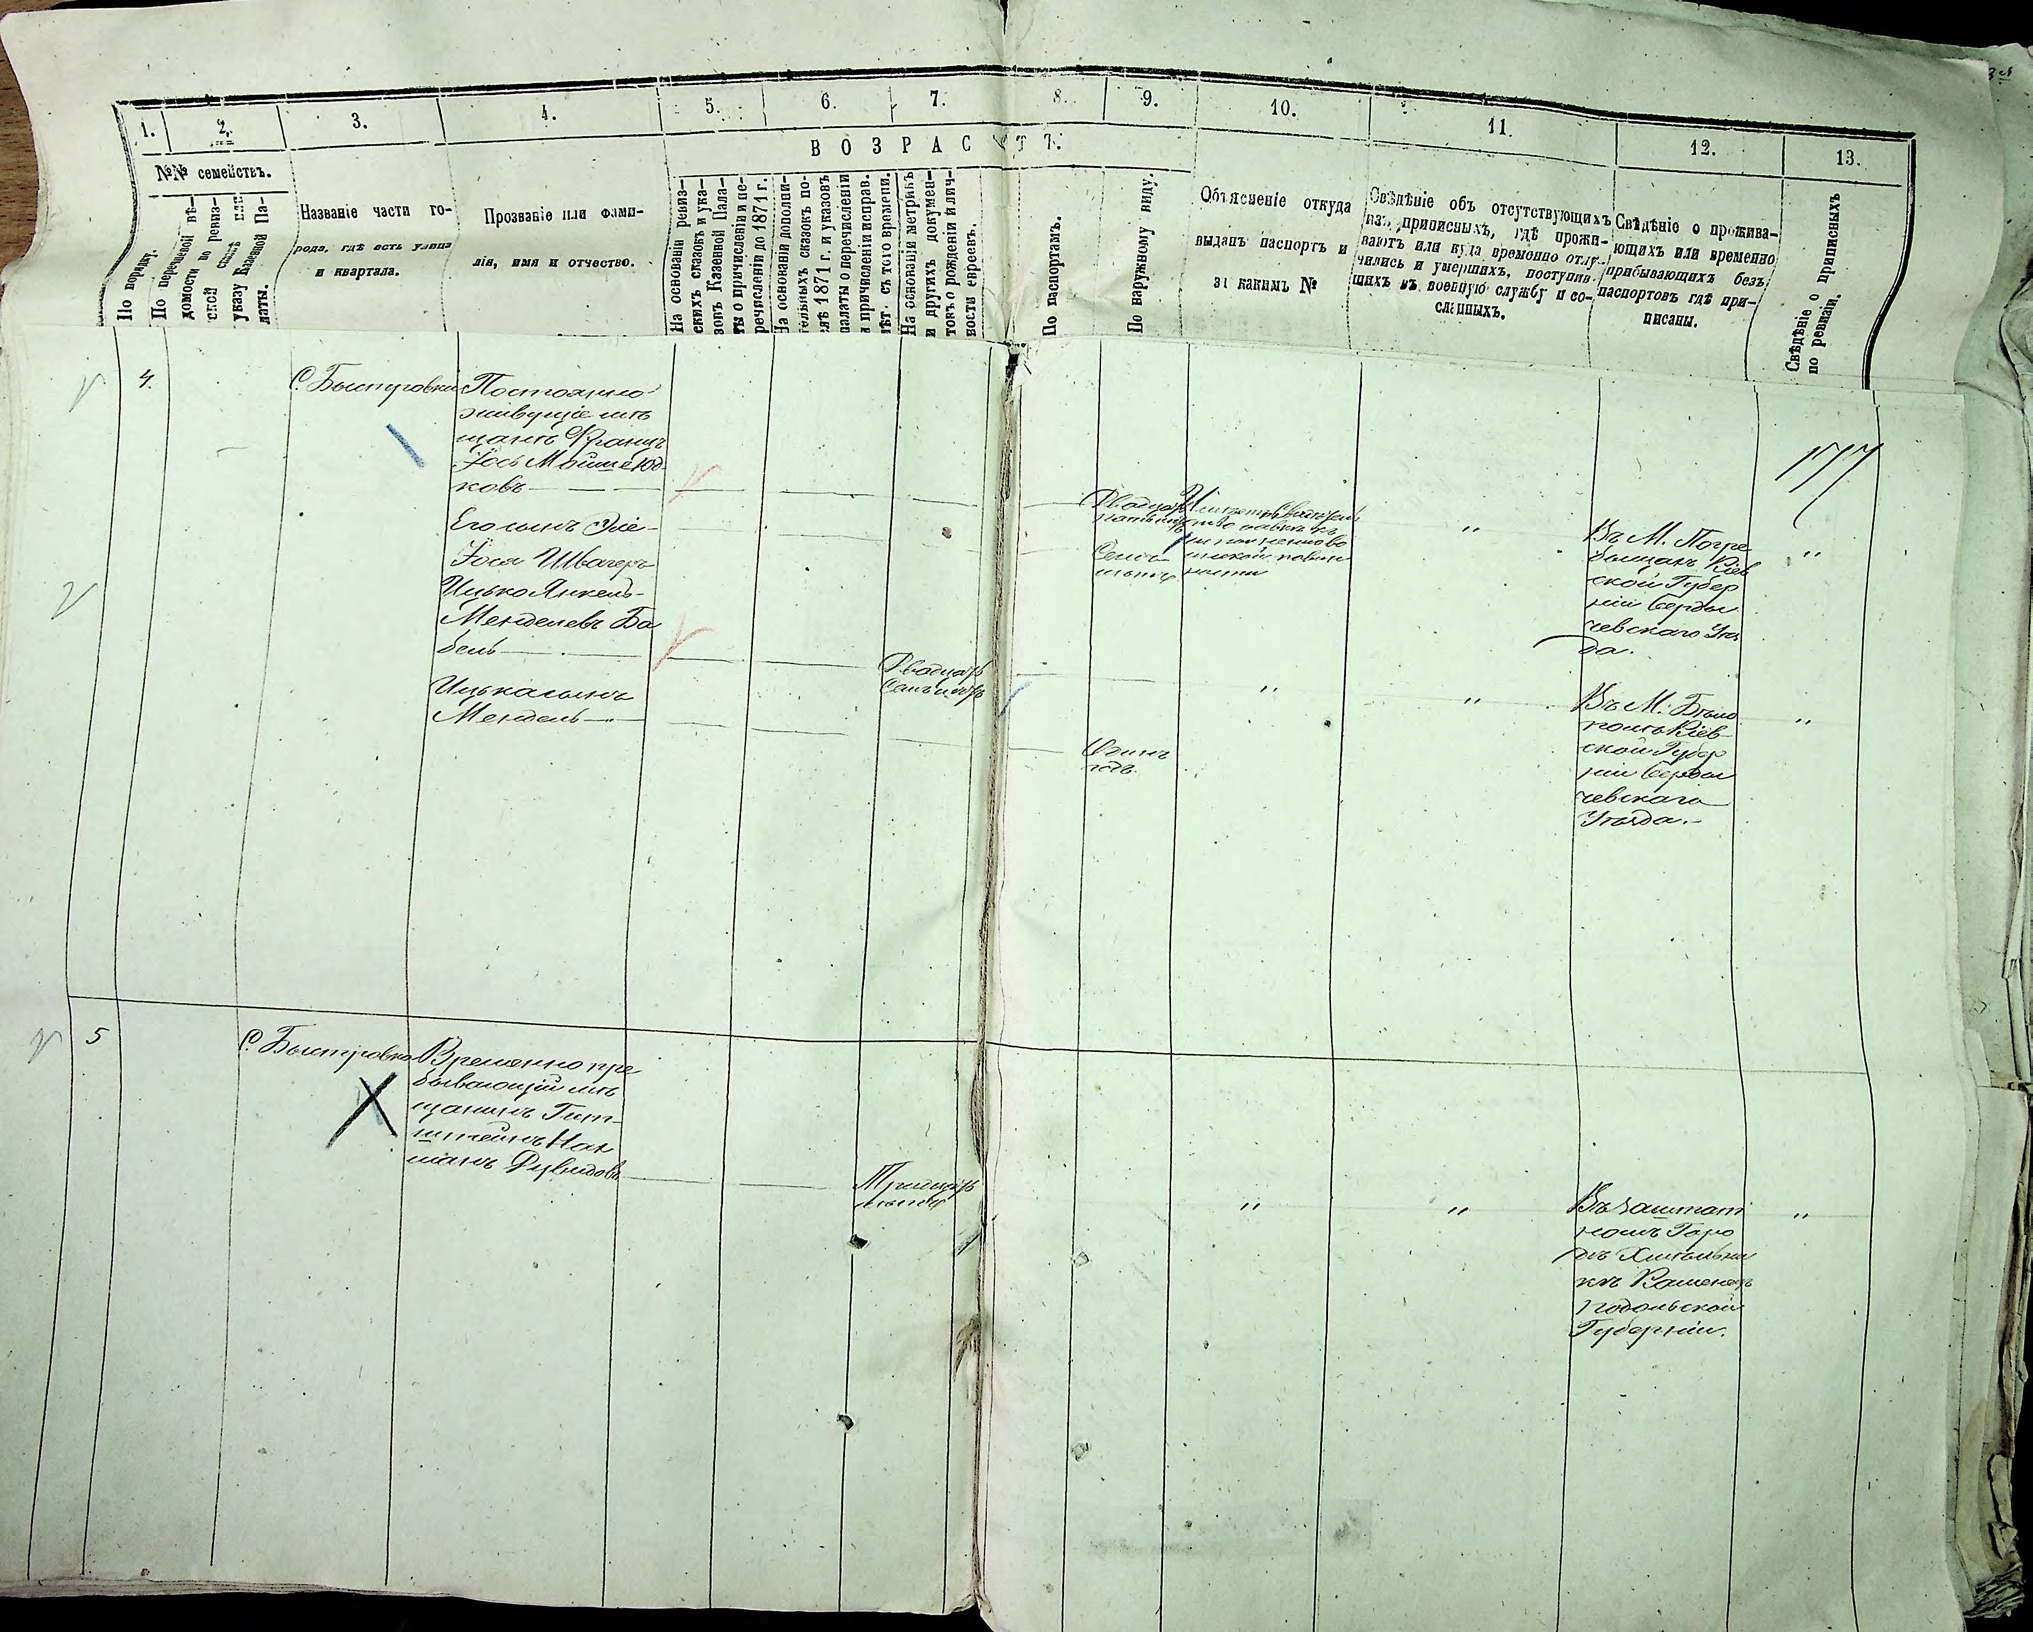 1. 2. 3. 4. 5. 6. 7. 8. 9. 10. 11. 12. 13.
№№ семействъ.
ВОЗРАСТЪ.
По порядку.
По перечневой вѣ-
домости
ской
указу Казенной Па-
латы.
Названіе части го-
рода, гдѣ есть улица
и квартала.
Прозваніе или фами-
лія, имя и отчество.
На основаніи ревиз-
скихъ сказокъ и ука-
зовъ Казенной Пала-
ты о причисленіи и пе-
речисленіи до 1871 г.
На основаніи дополни-
тельныхъ сказокъ по-
слѣ 1871 г. и указовъ
палаты о перечисленіи
и причисленіи исправ.
лѣт. съ того времени.
На основаніи метрикъ
и другихъ докумен-
товъ о рожденіи и лич-
ности евреевъ.
По паспортамъ.
По наружному виду.
Объясненіе откуда
выданъ паспортъ и
за какимъ №
Свѣдѣніе объ отсутствующихъ
изъ приписныхъ, гдѣ прожи-
ваютъ или куда временно отлу-
чились и умершихъ, поступив-
шихъ въ военную службу и со-
сланныхъ.
Свѣдѣніе о прожива-
ющихъ или временно
прибывающихъ безъ
паспортовъ гдѣ при-
писаны.
Свѣдѣніе о приписныхъ
по ревизіи.
4.
С. Быстровка
Постоянно
живущіе мѣ
щанъ
Іось Мошке Юд
ковъ
Его сынъ
Іося Швагеръ
Ицько Янкель-
Менделевъ Ба
бель
Двадцать
Семь лѣтъ
Ицька сынъ
Мендель
Одинъ
годъ
Въ М. Погре
бищахъ Кіев
ской Губер
ніи Берди
чевскаго Уѣз
да.
Въ М. Бѣло
полѣ Кіев
ской Губер
ніи Берди
чевскаго
Уѣзда.
5
С. Быстровка
Временно пре
бывающій мѣ
щанинъ
штейнъ
Дувидовъ
Тридцать
Въ заштат
номъ Горо
дѣ Хмѣльни
кѣ Каменецъ
Подольской
Губерніи.